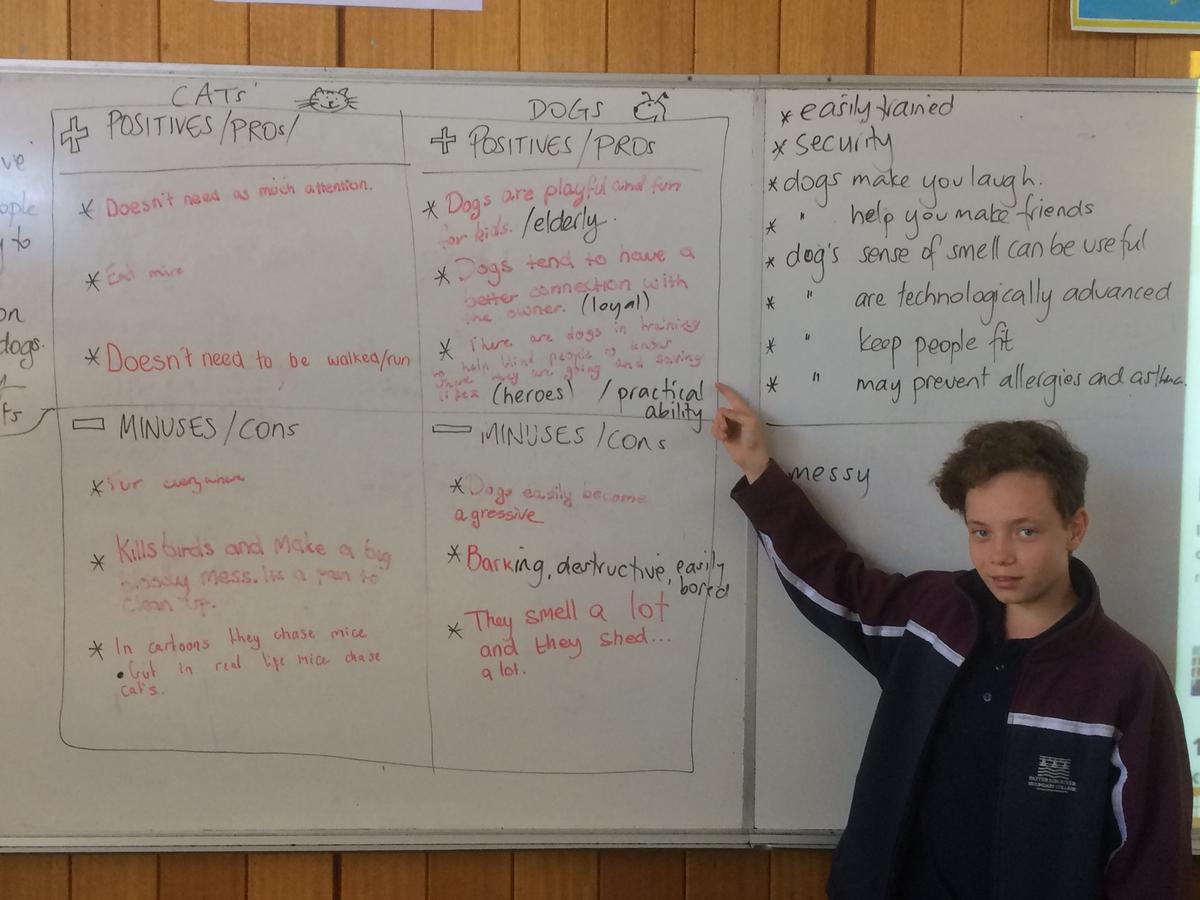 CATs'
POSITIVES/PROs/
* Doesn't need as much attention.
* Eat mice
* Doesn't need to be walked/run
MINUSES/Cons
* Fur everywhere
* Kills birds and Make a big
bloody mess. Its a pain to
clean up.
* In cartoons they chase mice
• But in real life mice chase
cat's.
DOGS
POSITIVES/PROS
* Dogs are playful and fun
for kids. /elderly.
* Dogs tend to have a
better connection with
the owner. (loyal)
* There are dogs in training
to help blind people to know
where they are going and saving
lifes (heroes) / practical
ability
MINUSES/Cons
* Dogs easily become
agressive
* Barking, destructive, easily
bored
* They smell a lot
and they shed...
a lot.
* easily trained
* security
* dogs make you laugh.
* " help you make friends
* dog's sense of smell can be useful
* " are technologically advanced
* " keep people fit
* " may prevent allergies and asthma.
messy
ve
ople
to
on
dogs.
ts
PATTERSON RIVER
SECONDARY COLLEGE